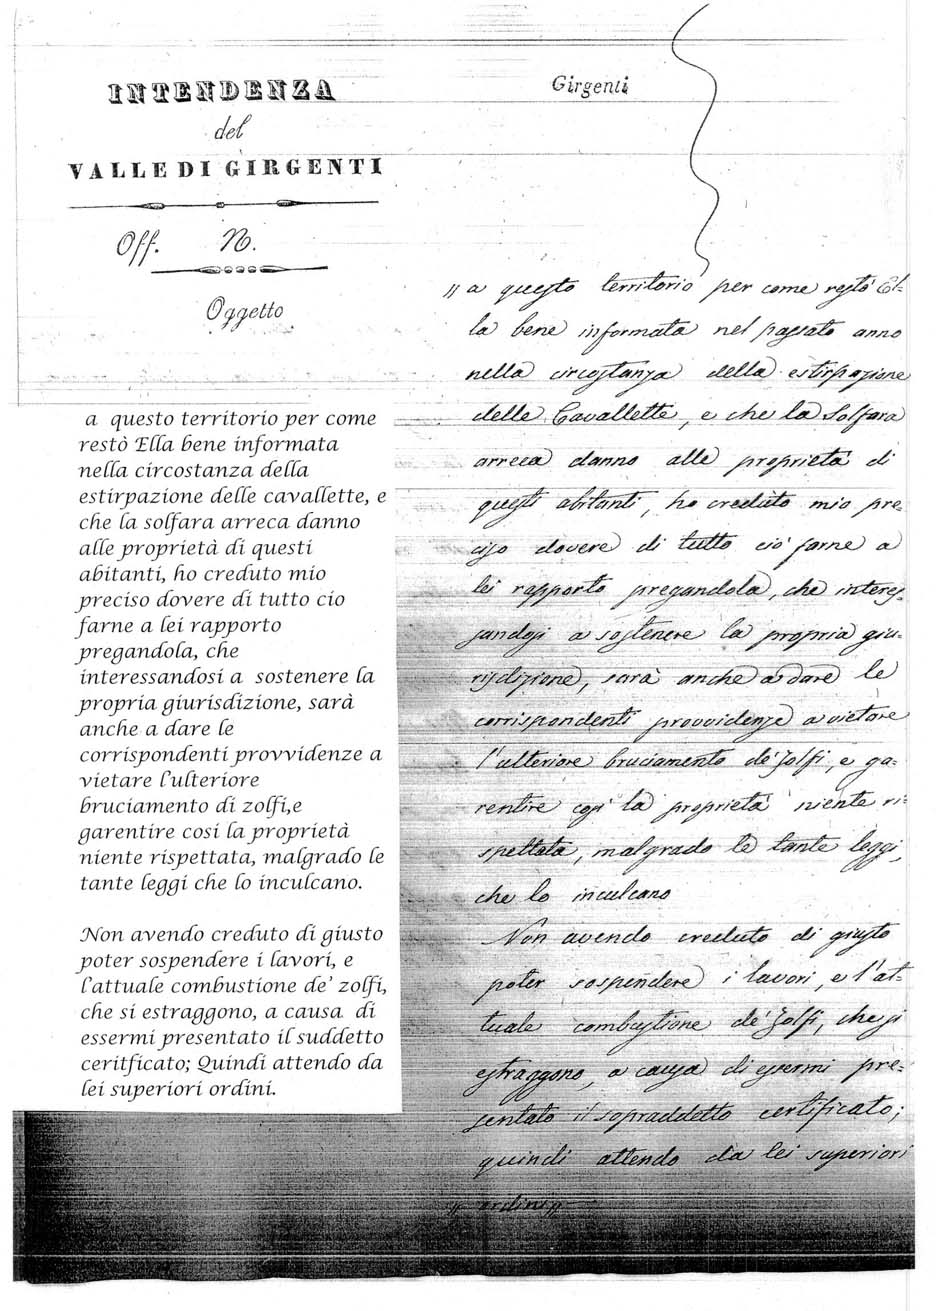 INTENDENZA
del
VALLE DI GIRGENTI
Off. N.
Oggetto
a questo territorio per come
restò Ella bene informata
nella circostanza della
estirpazione delle cavallette, e
che la solfara arreca danno
alle proprietà di questi
abitanti, ho creduto mio
preciso dovere di tutto cio
farne a lei rapporto
pregandola, che
interessandosi a sostenere la
propria giurisdizione, sarà
anche a dare le
corrispondenti provvidenze a
vietare l'ulteriore
bruciamento di zolfi,e
garentire cosi la proprietà
niente rispettata, malgrado le
tante leggi che lo inculcano.
Non avendo creduto di giusto
poter sospendere i lavori, e
l'attuale combustione de' zolfi,
che si estraggono, a causa di
essermi presentato il suddetto
ceritficato; Quindi attendo da
lei superiori ordini.
Girgenti
" a questo territorio per come restò El-
la bene informata nel passato anno
nella circostanza della estirpazione
delle Cavallette, e che la Solfara
arreca danno alle proprietà di
questi abitanti, ho creduto mio pre-
ciso dovere di tutto ciò farne a
lei rapporto pregandola, che interes-
sandosi a sostenere la propria giu-
risdizione, sarà anche a dare le
corrispondenti provvidenze a vietare
l'ulteriore bruciamento de' Zolfi, e ga-
rentire così la proprietà niente ri-
spettata, malgrado le tante leggi,
che lo inculcano
Non avendo creduto di giusto
poter sospendere i lavori, e l'at-
tuale combustione de' Zolfi, che si
estraggono, a causa di essermi pre-
sentato il sopraddetto certificato;
quindi attendo da lei superiori
" ordini "